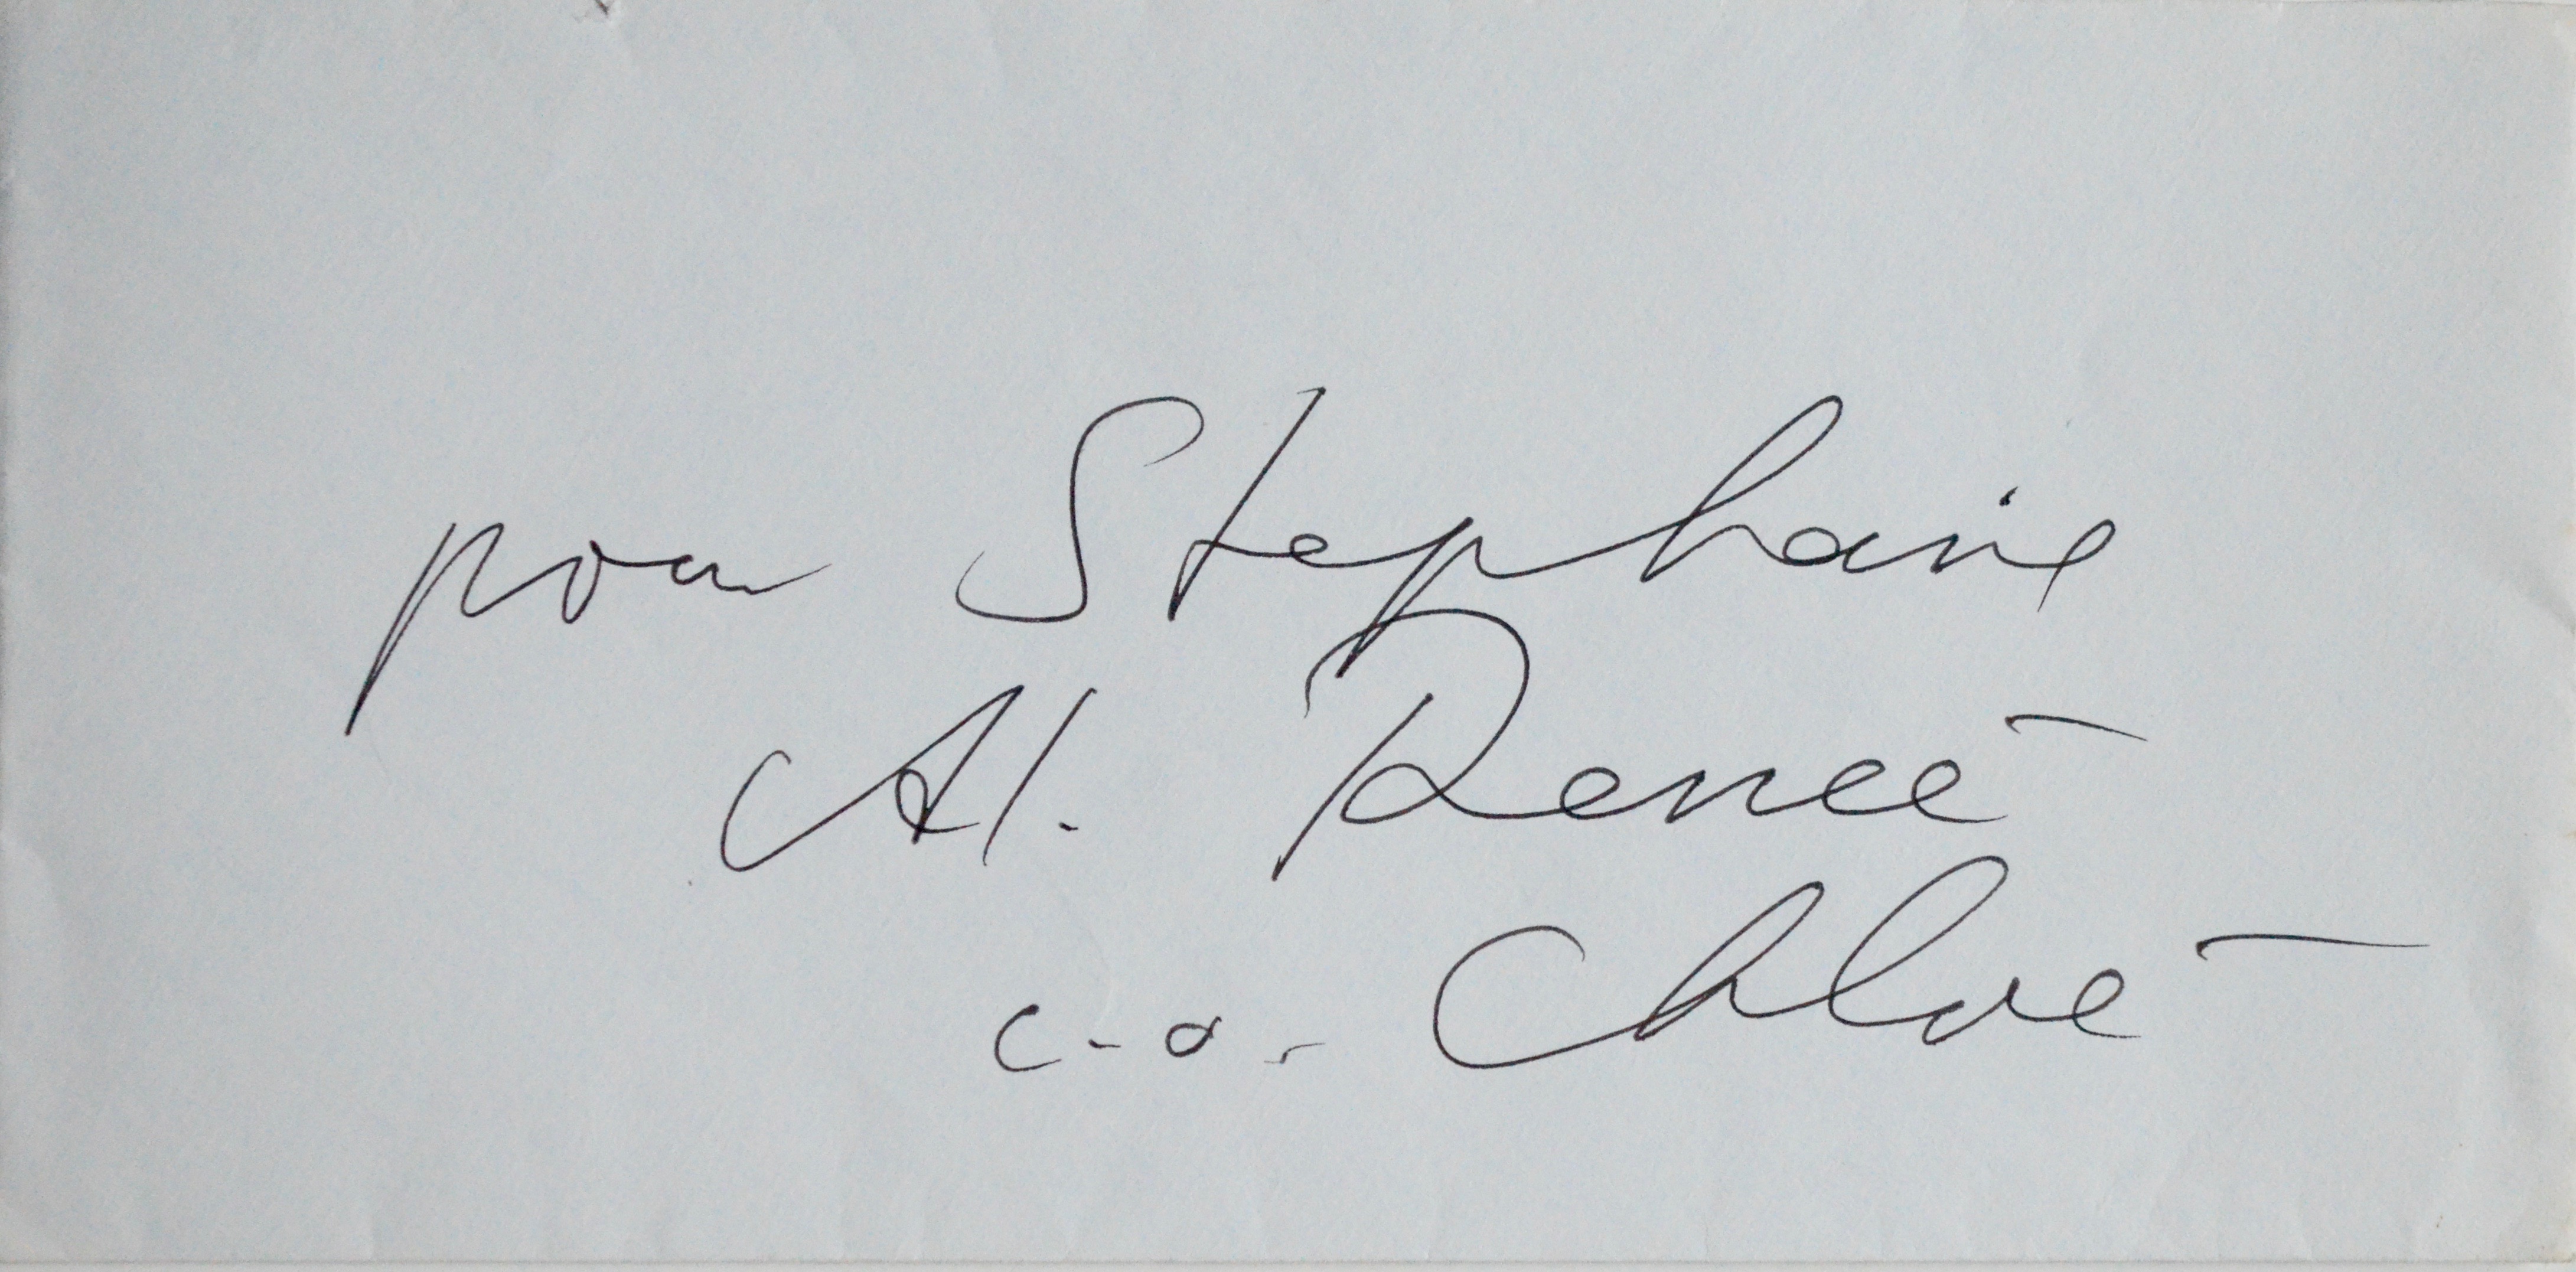 pour Stephanie
M. Reneé
c.o. Chloé